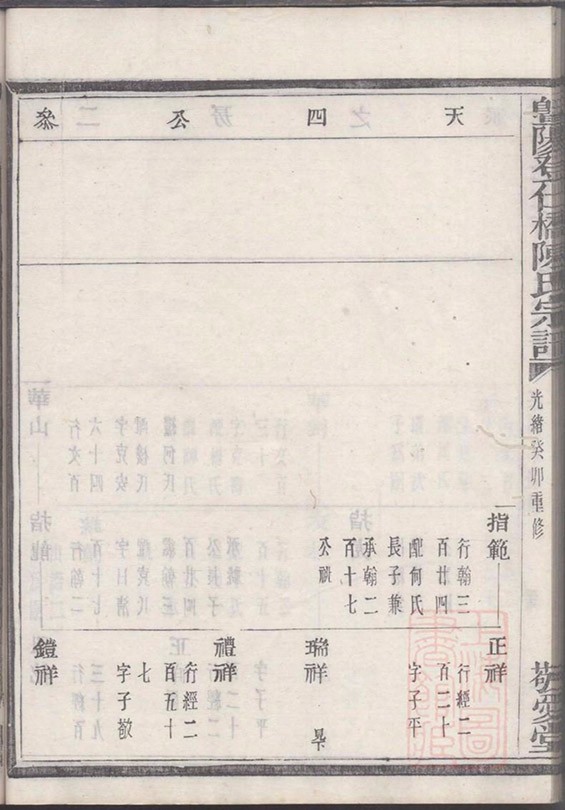 暨陽
仕橋陳氏宗譜
光緒癸卯重修
敬愛堂
天四公
指範
行翰三
百廿四
配何氏
長子兼
承翰二
百十七
公祧
正祥
行經二
百二十
字子平
瑞祥
禮祥
行經二
百五十
七
字子敬
鎧祥